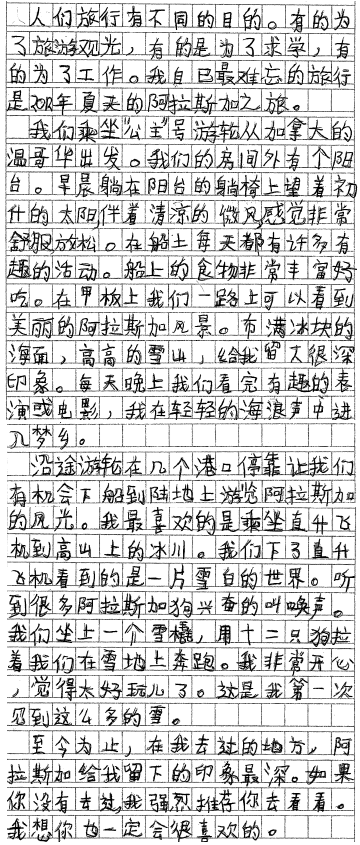 人们旅行有不同的目的。有的为
了旅游观光，有的是为了求学，有
的为了工作。我自己最难忘的旅行
是年夏天的阿拉斯加之旅。
我们乘坐“公主”号游轮从加拿大的
温哥华出发。我们的房间外有个阳
台。早晨躺在阳台的躺椅上望着初
升的太阳，伴着清凉的微风，感觉非常
舒服，放松。在船上每天都有许多有
趣的活动。船上的食物非常丰富好
吃。在甲板上我们一路上可以看到
美丽的阿拉斯加风景。布满冰块的
海面，高高的雪山，给我留大很深
印象。每天晚上我们看完有趣的表
演或电影，我在轻轻的海浪声中进
入梦乡。
沿途游轮在几个港口停靠让我们
有机会下船到陆地上游览阿拉斯加
的风光。我最喜欢的是乘坐直升飞
机到高山上的冰川。我们下了直升
飞机看到的是一片雪白的世界。听
到很多阿拉斯加狗兴奋的叫唤声。
我们坐上一个雪橇，用十二只狗拉
着我们在雪地上奔跑。我非常开心
，觉得太好玩儿了。这是我第一次
见到这么多的雪。
至今为止，在我去过的地方，阿
拉斯加给我留下的印象最深。如果
你没有去过，我强烈推荐你去看看。
我想你也一定会很喜欢的。